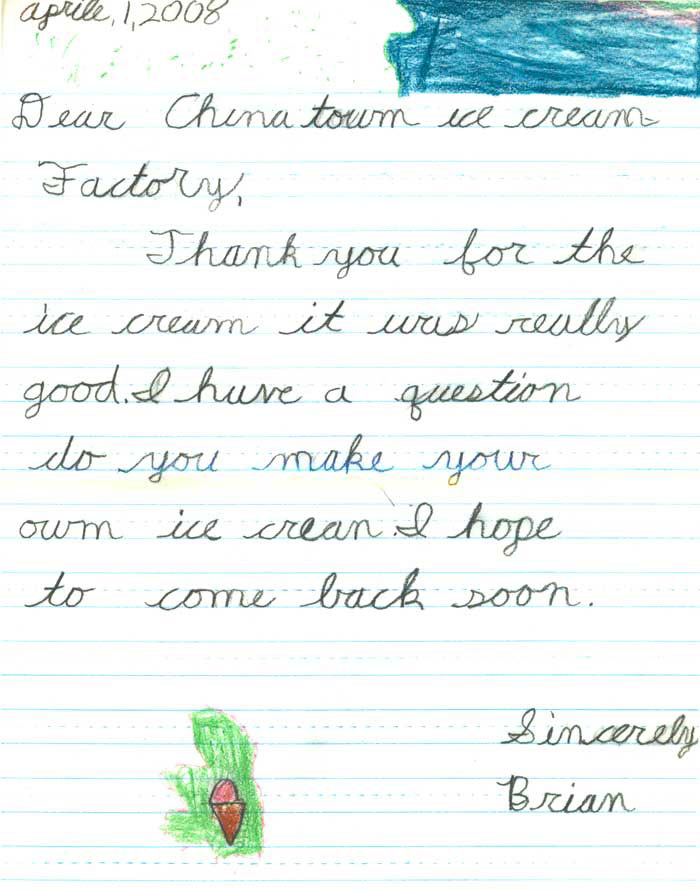 aprile,1,2008
Dear China town ice cream
Factory,
Thank you for the
ice cream it was really
good. I have a question
do you make your
own ice crean. I hope
to come back soon.
Sincerely
Brian